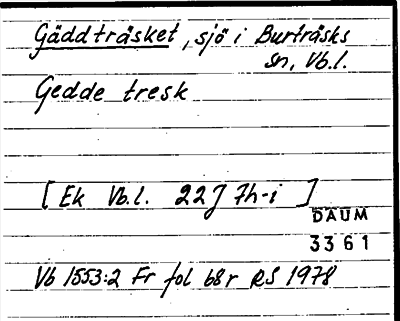 Gäddträsket, sjö i Burträsks
sn, Vb.l.
Gedde tresk
[Ek Vb.l. 22J 7h-i]
DAUM
3361
Vb 1553:2 Fr fol 68r RS 1978